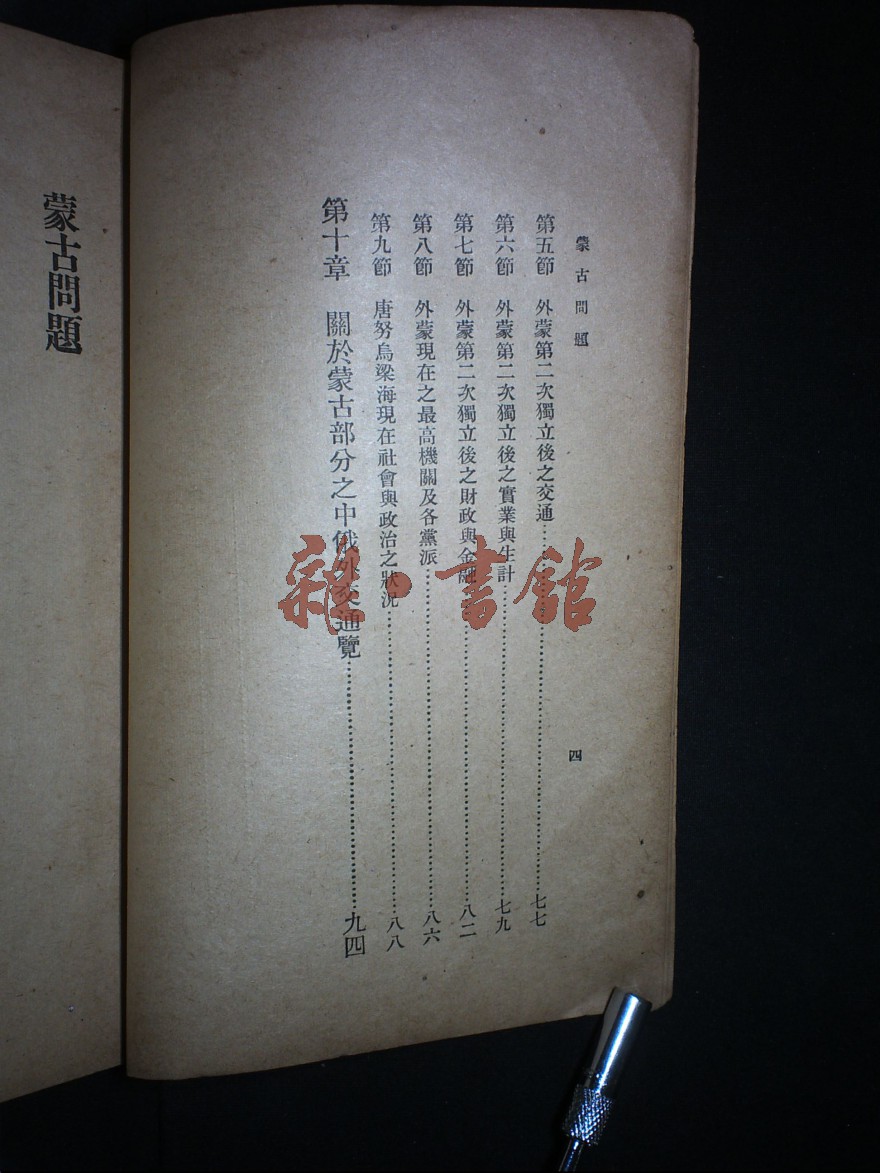 蒙古問題
四
第五節　外蒙第二次獨立後之交通……七七
第六節　外蒙第二次獨立後之實業與生計……七九
第七節　外蒙第二次獨立後之財政與金融……八二
第八節　外蒙現在之最高機關及各黨派……八六
第九節　唐努烏梁海現在社會與政治之狀況……八八
第十章　關於蒙古部分之中俄外交通覽……九四
蒙古問題
雜·書館